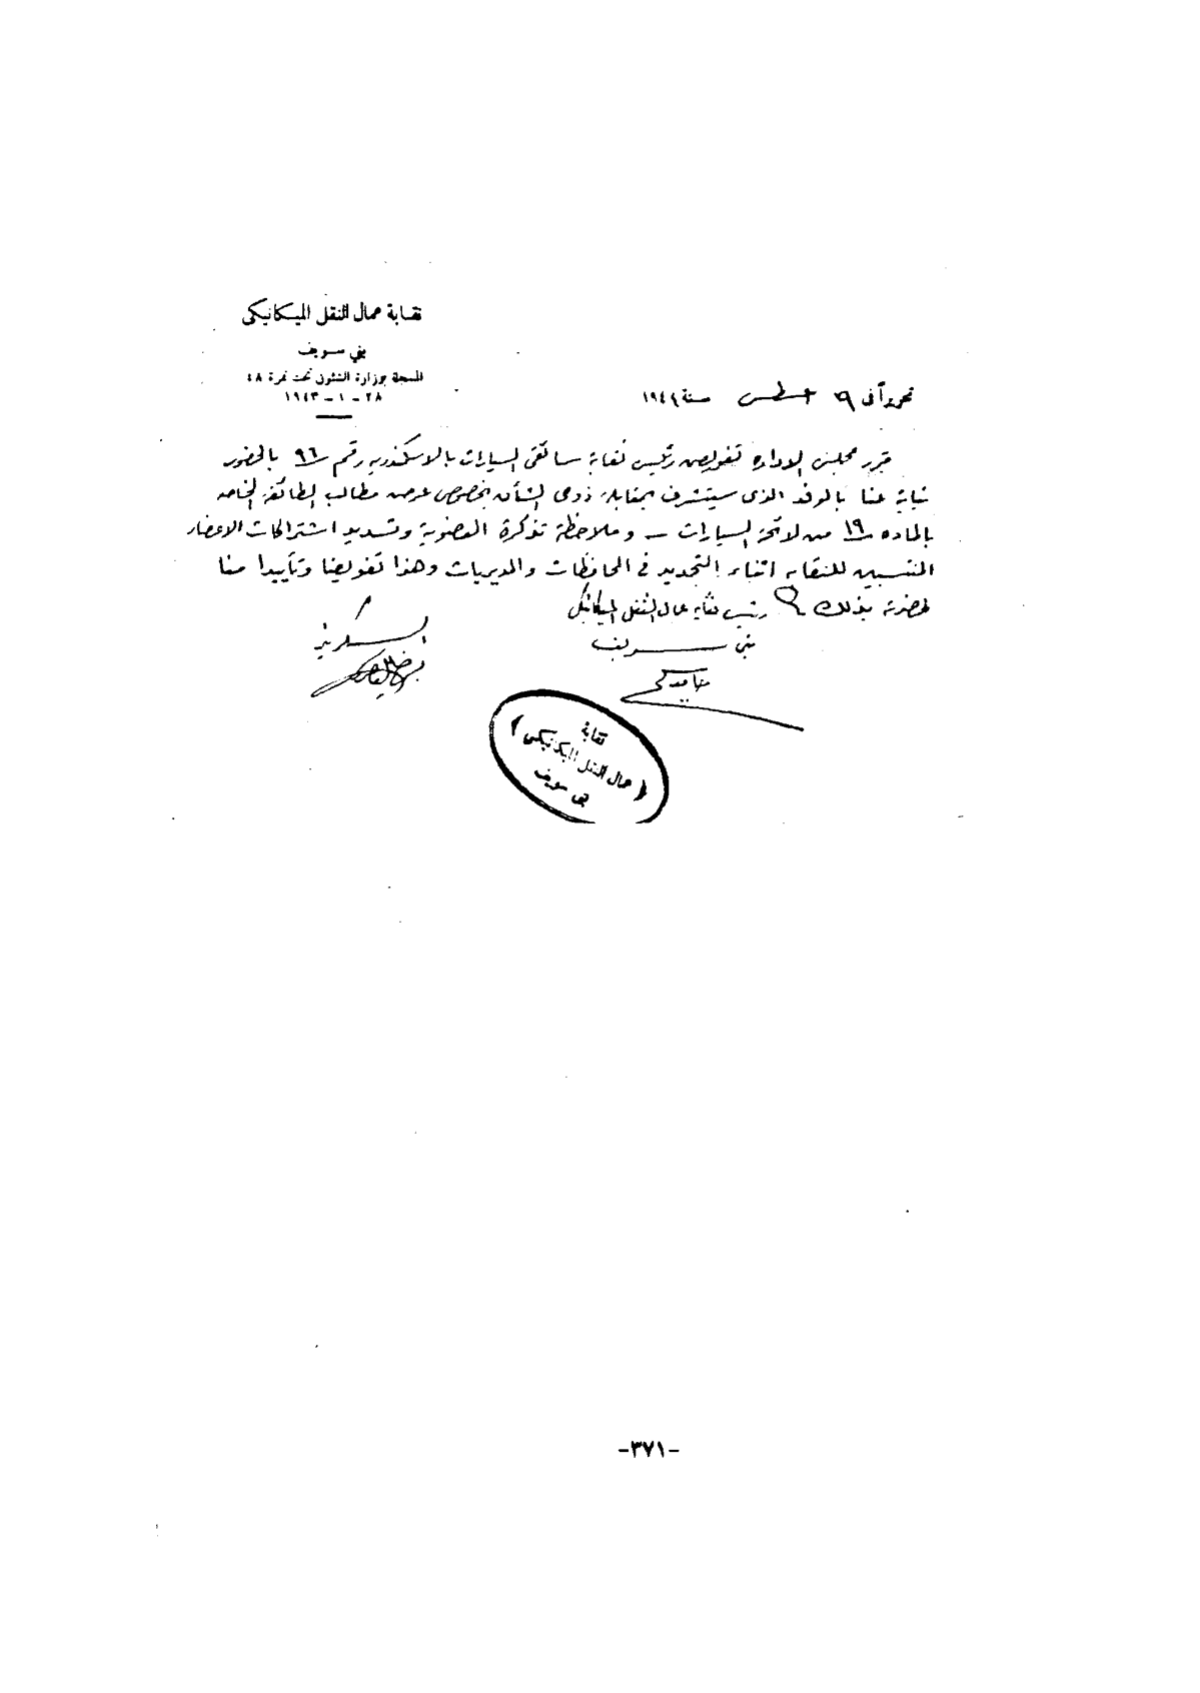 نقابة عمال النقل الميكانيكى
بني سويف
المسجلة بوزارة الشئون تحت نمرة ٤٨
٢٨ - ١ - ١٩٤٣
تحريرآ فى ٩ اغسطس سنة ١٩٤٤
قرر مجلس الاداره تفويض رئيس نقابة سائقى السيارات بالاسكندريه رقم ٩٦ بالحضور
نيابة عنا بالوفد الذى سيتشرف بمقابلة ذوى الشأن بخصوص عرض مطالب الطائفة الخاصه
بالماده ١٩ من لائحة السيارات - وملاحظة تذكرة العضوية وتسديد اشتراكات الاعضاء
المنتسبين للنقابه اثناء التجديد فى المحافظات والمديريات وهذا تفويضا وتأييدا منا
لحضرته بذلك رئيس نقابة عمال النقل الميكانيكى
بنى سويف
السكرتير
نقابة
( عمال النقل الميكانيكى )
بنى سويف
-٣٧١-